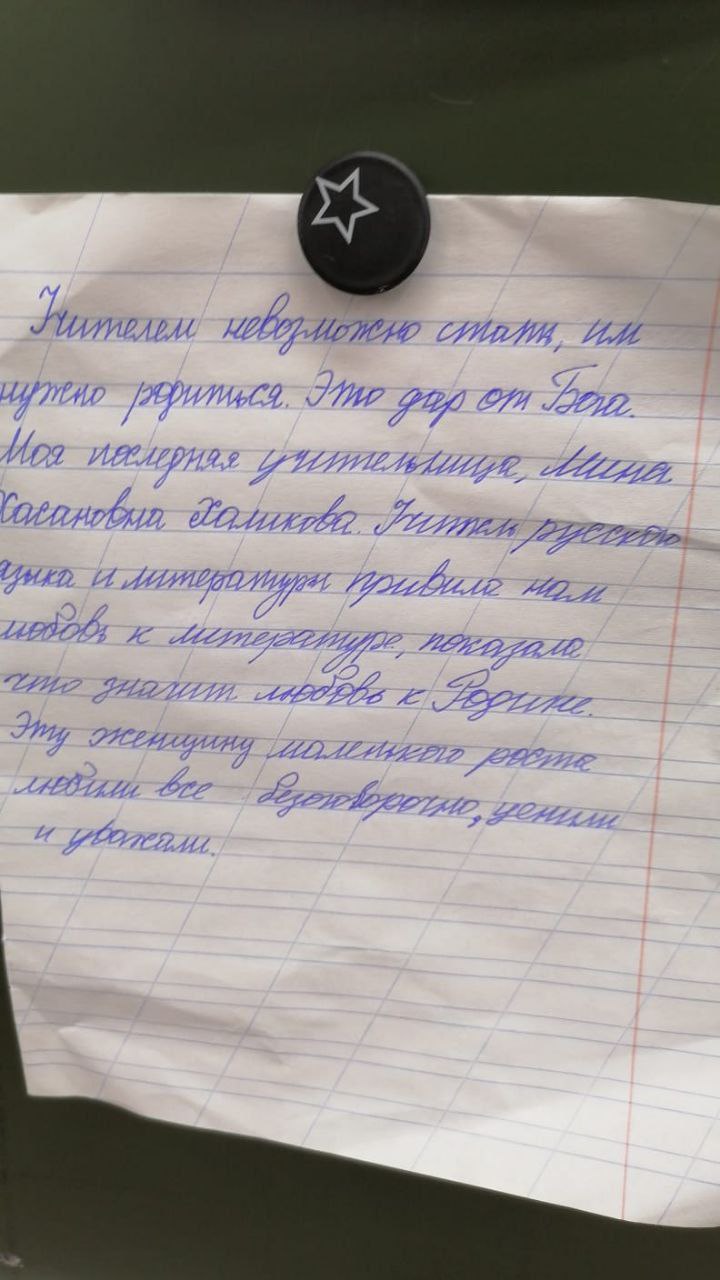 Учителем невозможно стать, им
нужно родиться. Это дар от Бога.
Моя последняя учительница, Мина
Хасановна Халикова. Учитель русского
языка и литературы привила нам
любовь к литературе, показала
что значит любовь к Родине.
Эту женщину маленького роста
любили все безоговорочно, ценили
и уважали.